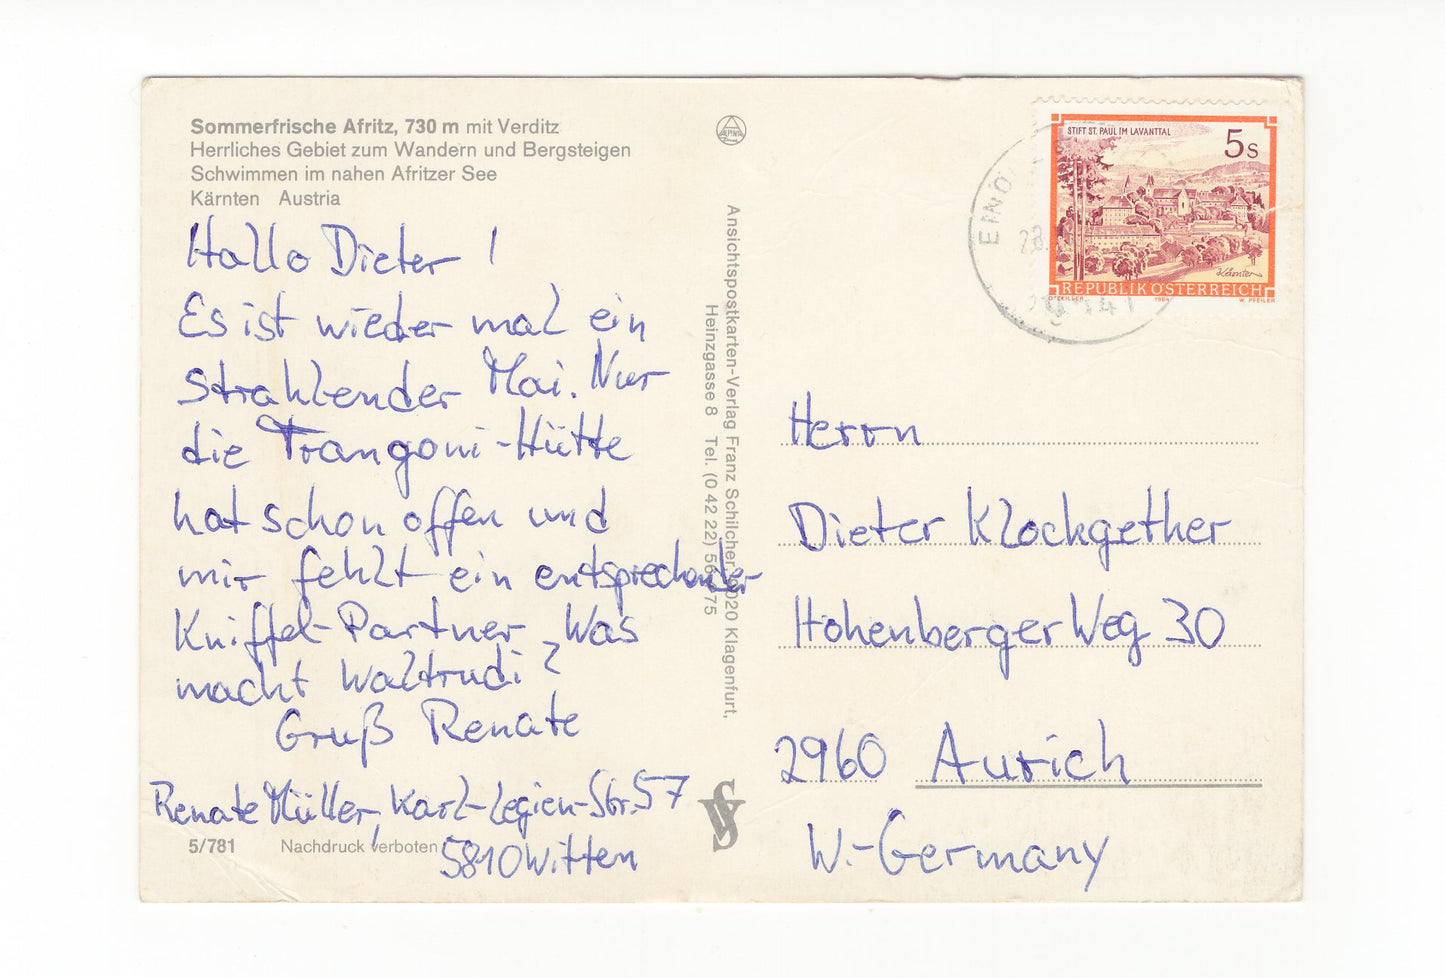 Sommerfrische Afritz, 730 m mit Verditz
Herrliches Gebiet zum Wandern und Bergsteigen
Schwimmen im nahen Afritzer See
Kärnten Austria
Hallo Dieter !
Es ist wieder mal ein
strahlender Mai. Nur
die Trangoni-Hütte
hat schon offen und
mir fehlt ein entsprechender
Kniffel-Partner. Was
macht Waltrudi?
Gruß Renate
Renate Müller, Karl-Legien-Str. 57
5810 Witten
5/781 Nachdruck verboten
Ansichtspostkarten-Verlag Franz Schilcher, 9020 Klagenfurt,
Heinzgasse 8 Tel. (0 42 22)
STIFT ST. PAUL IM LAVANTTAL
5 S
Kärnten
REPUBLIK ÖSTERREICH
1984 W. PFEILER
EINÖ
Herrn
Dieter Klockgether
Hohenberger Weg 30
2960 Aurich
W.-Germany